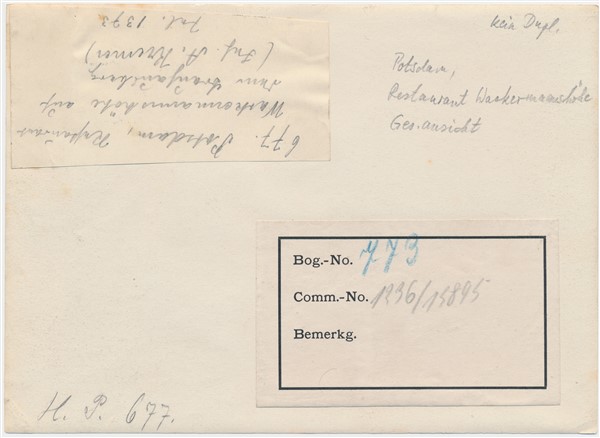 677. Potsdam, Restaurant
Wackermannshöhe auf
dem Brauhausberg
(Inh. A. Kremer)
Tel. 1373
kein Dupl.
Potsdam,
Restaurant Wackermannshöhe
Ges. ansicht
Bog.-No. 773
Comm.-No. 1236/15895
Bemerkg.
H. P. 677.